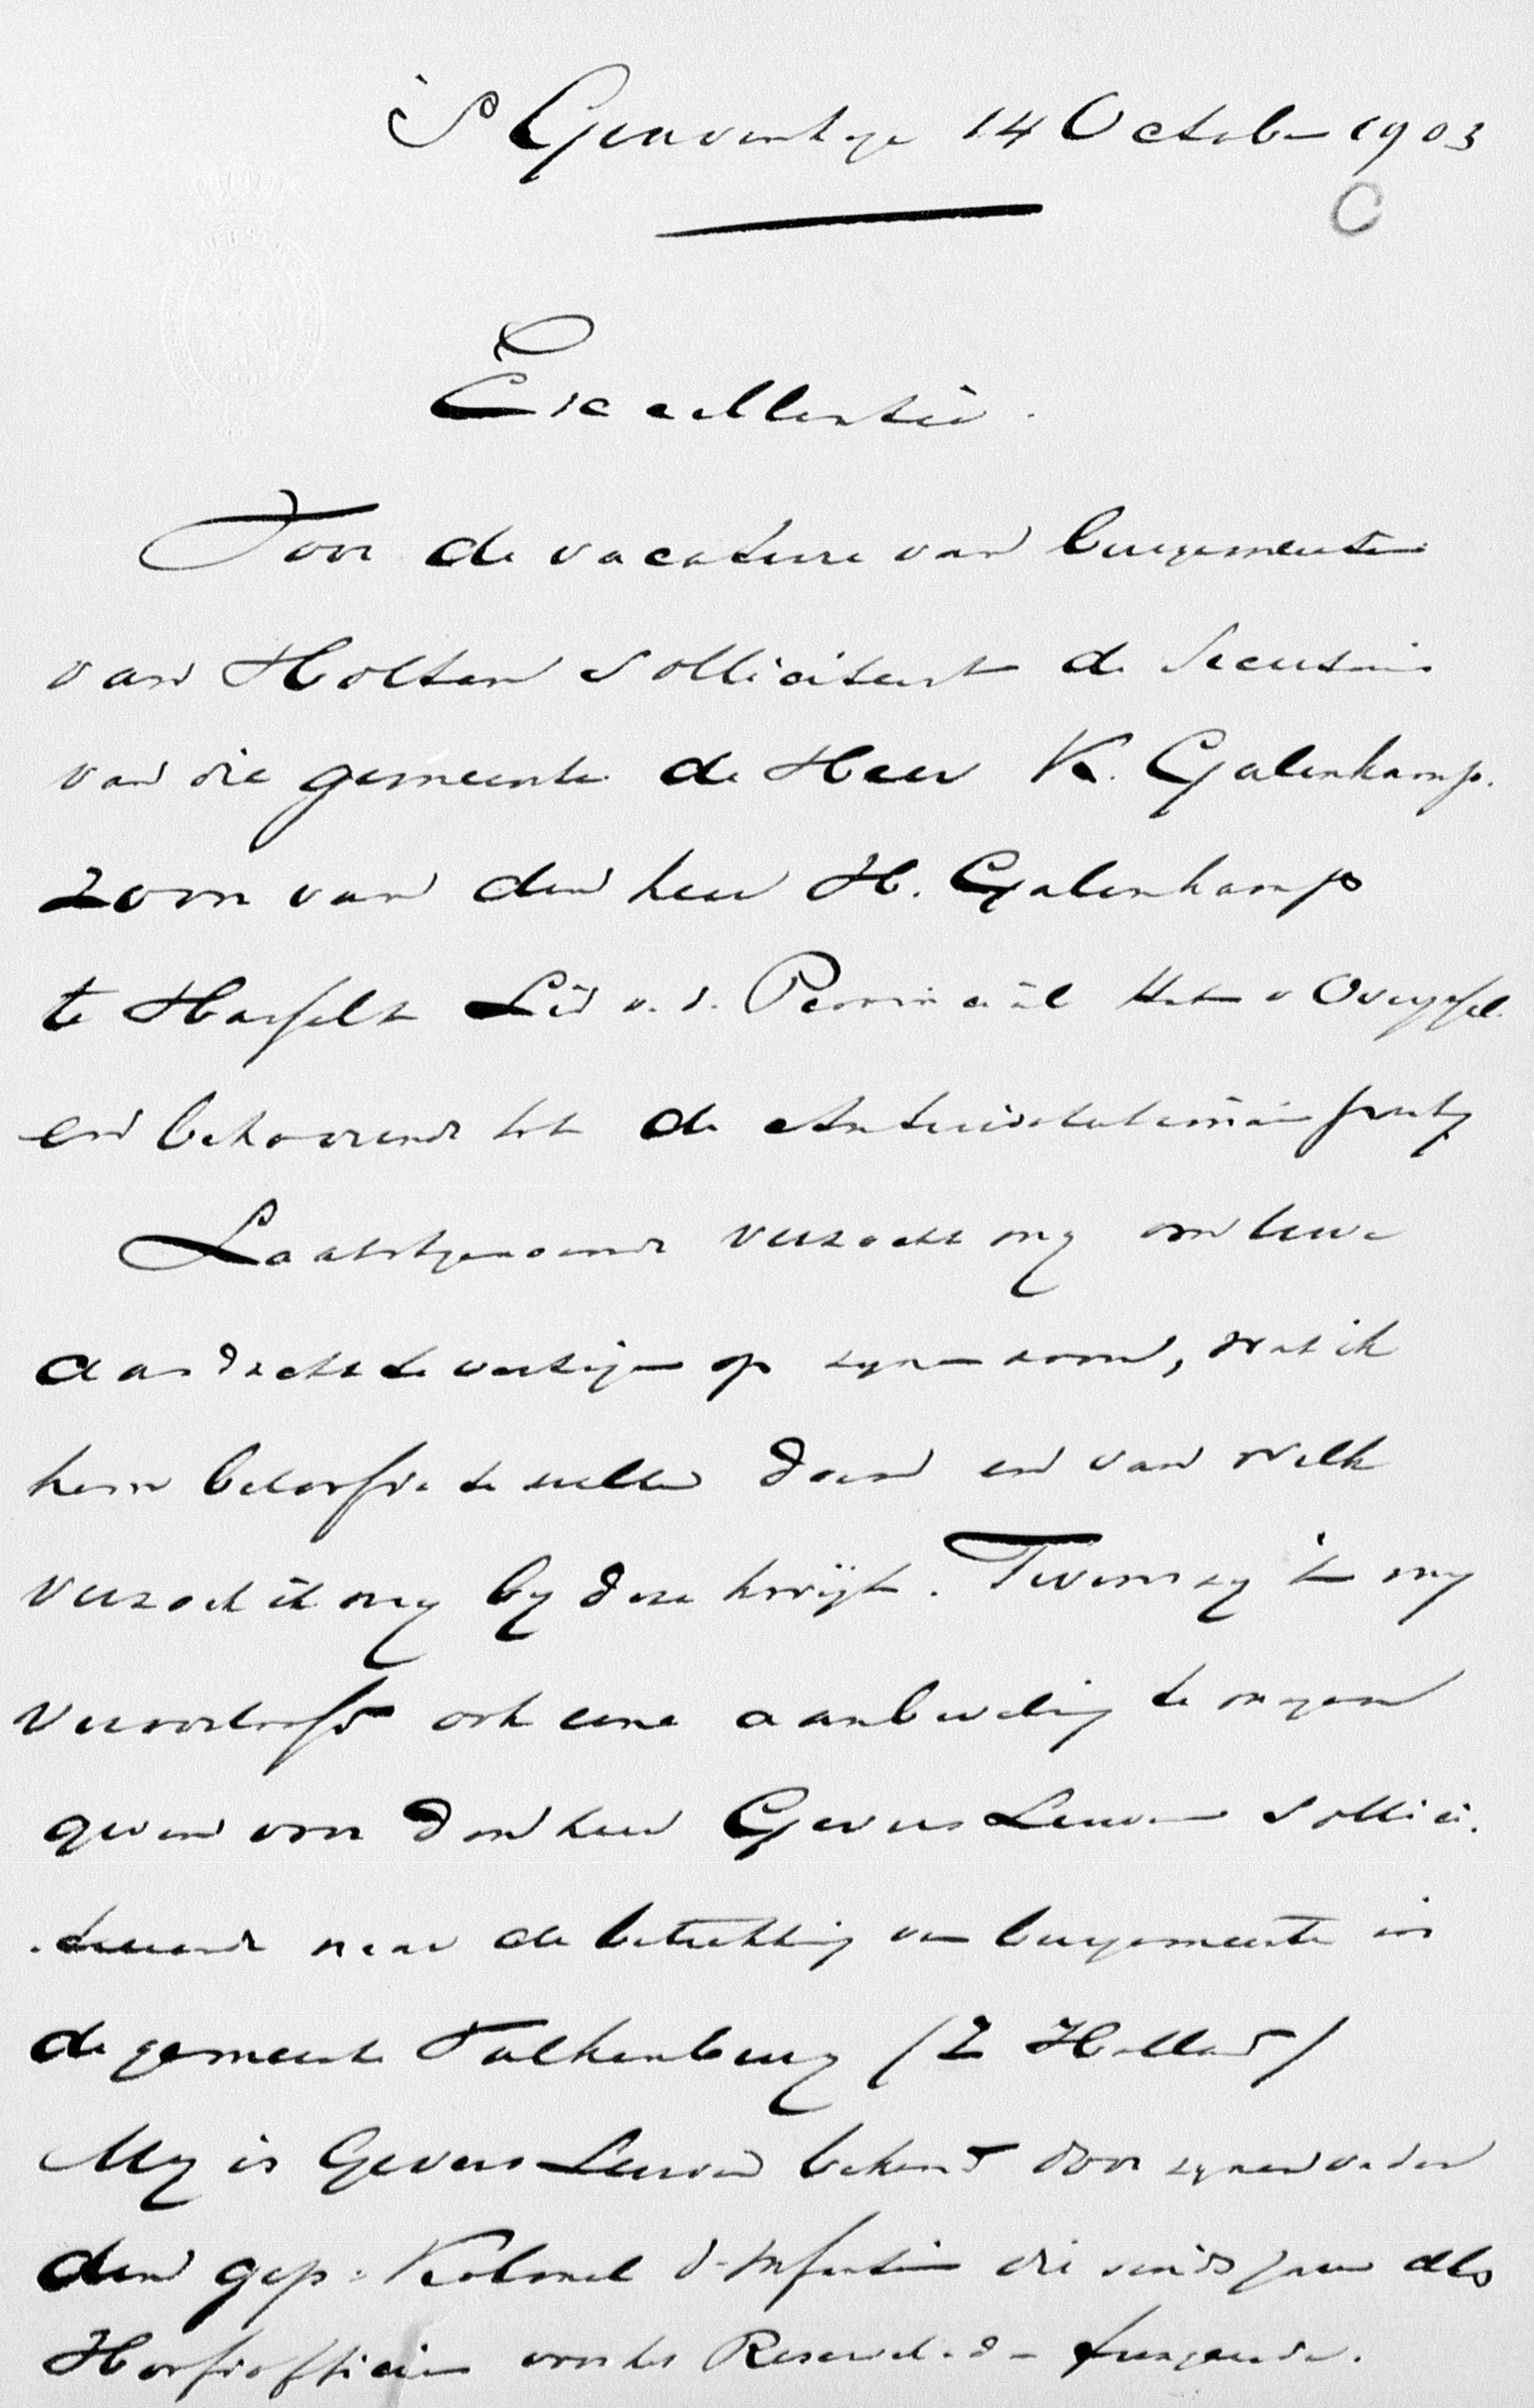 's Gravenhage 14 October 1903
C
Excellentie.
Voor de vacature van burgemeester
van Holten solliciteert de Secretaris
van die gemeente de Heer K. Galenkamp.
zoon van den heer H. Galenkamp
te Hasselt Lid v. d. Provinciale Staten v Overijssel
en behoorende tot de Antirevolutionaire partij
Laatstgenoemde verzocht mij om Uwe
aandacht te vestigen op zijnen zoon, wat ik
hem beloofde te zullen doen en van welk
verzoek ik mij bij deze kwijt. Tevens zij het mij
veroorloofd ook eene aanbeveling te mogen
geven voor den heer Gevers Leuven sollici-
-teerende naar de betrekking van burgemeester in
de gemeente Valkenburg (Z Holland)
Mij is Gevers Leuven bekend door zijnen vader
den gep. Kolonel d. Infanterie die sinds jaren als
Hoofdofficier voor het Reservekader fungeerde.